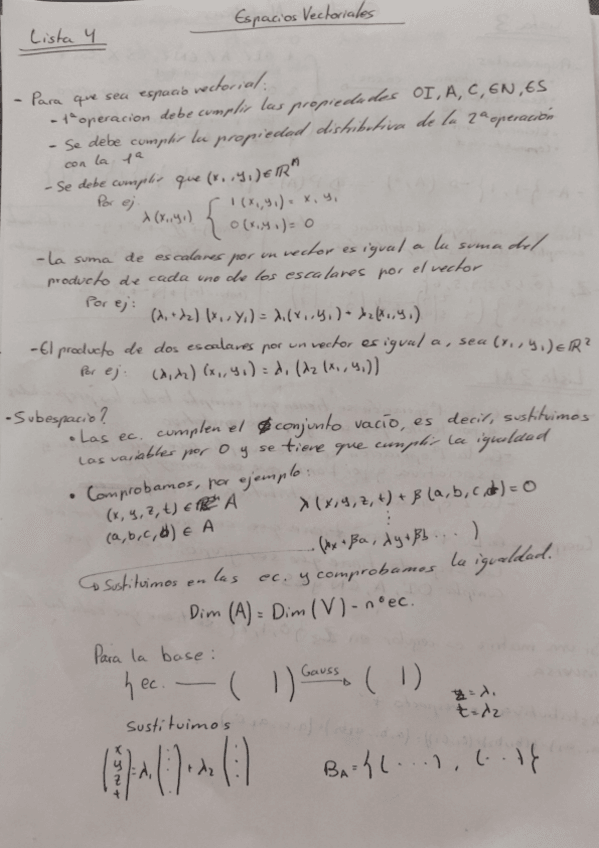 Espacios Vectoriales
Lista 4
- Para que sea espacio vectorial:
- 1ª operacion debe cumplir las propiedades OI, A, C, ∃N, ∃S
- Se debe cumplir la propiedad distributiva de la 2ª operación
con la 1ª
- Se debe cumplir que (x₁, y₁) ∈ ℝⁿ
Por ej. λ(x₁, y₁) { 1(x₁, y₁) = x₁ y₁
0(x₁, y₁) = 0
- La suma de escalares por un vector es igual a la suma del
producto de cada uno de los escalares por el vector
Por ej: (λ₁ + λ₂)(x₁, y₁) = λ₁(x₁, y₁) + λ₂(x₁, y₁)
- El producto de dos escalares por un vector es igual a, sea (x₁, y₁) ∈ ℝ²
Por ej: (λ₁λ₂)(x₁, y₁) = λ₁(λ₂(x₁, y₁))
- Subespacio?
• Las ec. cumplen el conjunto vacío, es decir, sustituimos
las variables por 0 y se tiene que cumplir la igualdad
• Comprobamos, por ejemplo:
(x, y, z, t) ∈ A λ(x, y, z, t) + β(a, b, c, d) = 0
(a, b, c, d) ∈ A ⋮
(λx + βa, λy + βb ... )
Sustituimos en las ec. y comprobamos la igualdad.
Dim (A) = Dim (V) - nº ec.
Para la base:
{ ec. — ( | ) Gauss → ( | ) z = λ₁
t = λ₂
Sustituimos
(x y z t) = λ₁ (⋮) + λ₂ (⋮) B_A = {(...), (..)}